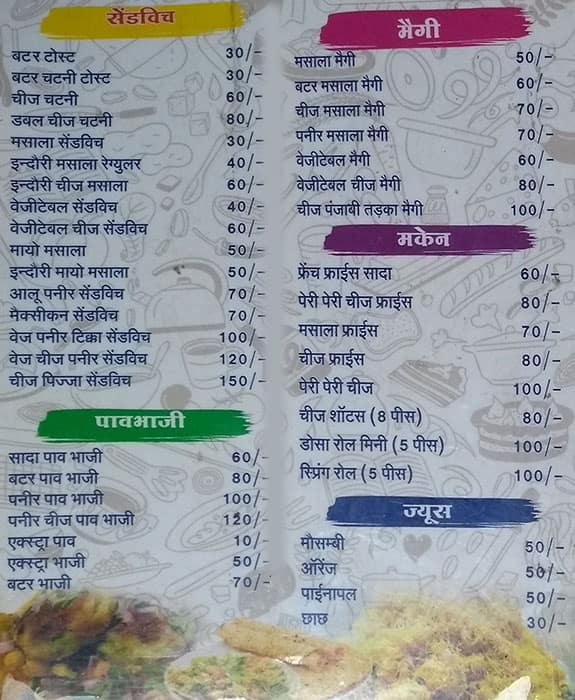 सेंडविच
बटर टोस्ट 30/-
बटर चटनी टोस्ट 30/-
चीज चटनी 60/-
डबल चीज चटनी 80/-
मसाला सेंडविच 30/-
इन्दौरी मसाला रेग्युलर 40/-
इन्दौरी चीज मसाला 60/-
वेजीटेबल सेंडविच 40/-
वेजीटेबल चीज सेंडविच 60/-
मायो मसाला 50/-
इन्दौरी मायो मसाला 50/-
आलू पनीर सेंडविच 70/-
मैक्सीकन सेंडविच 70/-
वेज पनीर टिक्का सेंडविच 100/-
वेज चीज पनीर सेंडविच 120/-
चीज पिज्जा सेंडविच 150/-
पावभाजी
सादा पाव भाजी 60/-
बटर पाव भाजी 80/-
पनीर पाव भाजी 100/-
पनीर चीज पाव भाजी 120/-
एक्स्ट्रा पाव 10/-
एक्स्ट्रा भाजी 50/-
बटर भाजी 70/-
मैगी
मसाला मैगी 50/-
बटर मसाला मैगी 60/-
चीज मसाला मैगी 70/-
पनीर मसाला मैगी 70/-
वेजीटेबल मैगी 60/-
वेजीटेबल चीज मैगी 80/-
चीज पंजाबी तड़का मैगी 100/-
मकेन
फ्रेंच फ्राईस सादा 60/-
पेरी पेरी चीज फ्राईस 80/-
मसाला फ्राईस 70/-
चीज फ्राईस 80/-
पेरी पेरी चीज 100/-
चीज शॉटस (8 पीस) 80/-
डोसा रोल मिनी (5 पीस) 100/-
स्प्रिंग रोल (5 पीस) 100/-
ज्यूस
मौसम्बी 50/-
ऑरेंज 50/-
पाईनापल 50/-
छाछ 30/-